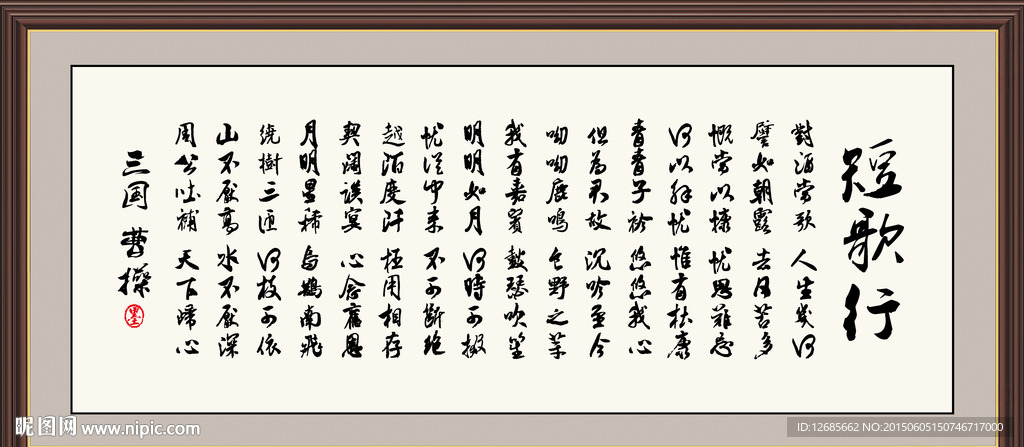 短歌行
對酒當歌 人生幾何
譬如朝露 去日苦多
慨當以慷 忧思難忘
何以解忧 惟有杜康
青青子衿 悠悠我心
但為君故 沉吟至今
呦呦鹿鳴 食野之苹
我有嘉賓 鼓瑟吹笙
明明如月 何時可掇
忧從中來 不可斷絕
越陌度阡 枉用相存
契闊談宴 心念舊恩
月明星稀 烏鵲南飛
繞樹三匝 何枝可依
山不厭高 水不厭深
周公吐哺 天下歸心
三国 曹操
昵图网 www.nipic.com
ID:12685662 NO:20150605150746717000